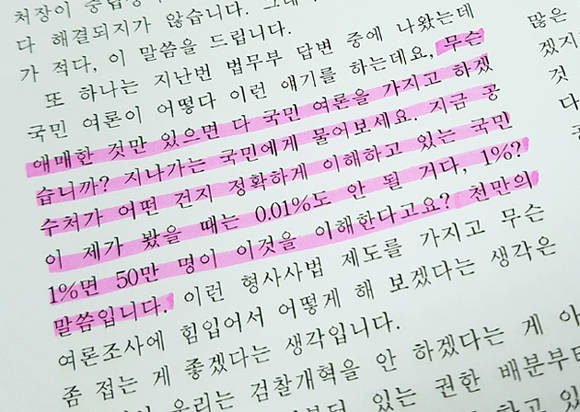 처장이
다 해결되지가 않습니다. 그래
가 적다, 이 말씀을 드립니다.
또 하나는 지난번 법무부 답변 중에 나왔는데
국민 여론이 어떻다 이런 얘기를 하는데요, 무슨
애매한 것만 있으면 다 국민 여론을 가지고 하겠
습니까? 지나가는 국민에게 물어보세요. 지금 공
수처가 어떤 건지 정확하게 이해하고 있는 국민
이 제가 봤을 때는 0.01%도 안 될 거다, 1%?
1%면 50만 명이 이것을 이해한다고요? 천만의
말씀입니다. 이런 형사사법 제도를 가지고 무슨
여론조사에 힘입어서 어떻게 해 보겠다는 생각은
좀 접는 게 좋겠다는 생각입니다.
우리는 검찰개혁을 안 하겠다는 게 아
있는 권한 배분부터
많은
겠지
것
다